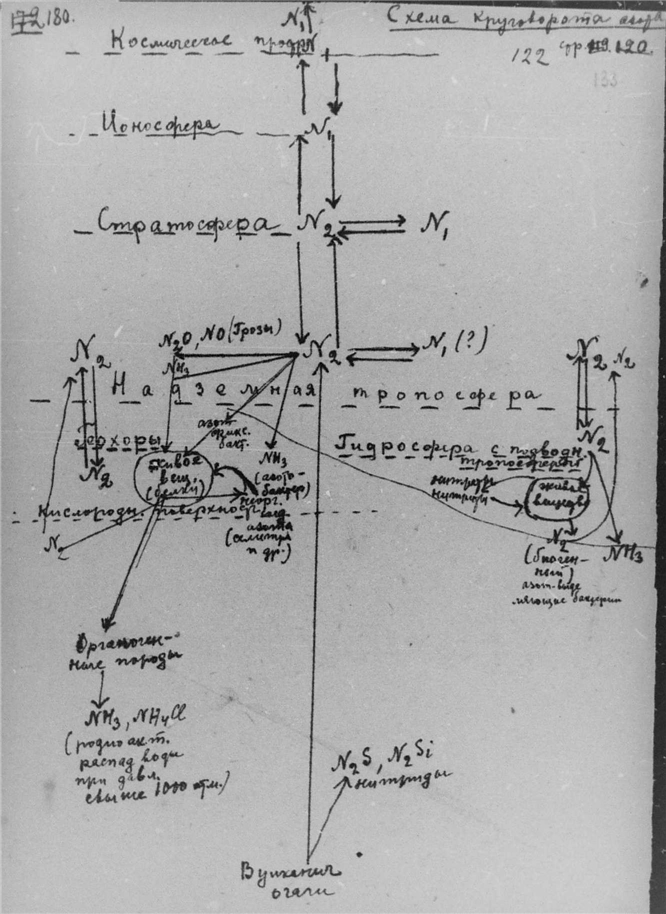 180.
Схема круговорота азота
122 стр. 120.
133
N₁
Космическое
Ионосфера
N₁
Стратосфера N₂ N₁
N₂ N₂O, NO (Грозы) N₂ N₁ (?) N₂ N₂
NH₃
Надземная тропосфера
азот
фикс.
бакт.
Геохоры
N₂
Гидросфера с подводн.
тропосферой
N₂
живое
вещ.
(белки)
NH₃
(азото-
бактер)
неорг.
соед.
азота
(селитра
и др.)
нитраты
нитриты
живое
веществ
кислородн. поверхность
N₂
N₂
(биоген-
ный)
азот-выде
ляющие бактерии
NH₃
Органоген-
ные породы
NH₃, NH₄Cl
(радиоакт.
распад воды
при давл.
свыше 1000 атм.)
N₂S, N₂Si
нитриды
Вулканич
очаги